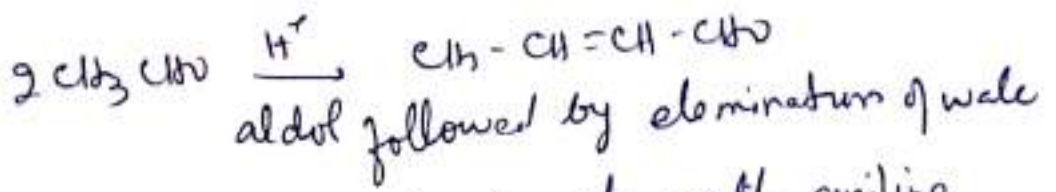 2 CH3 CHO H+ → CH3 - CH = CH - CHO
aldol followed by elemination of wate